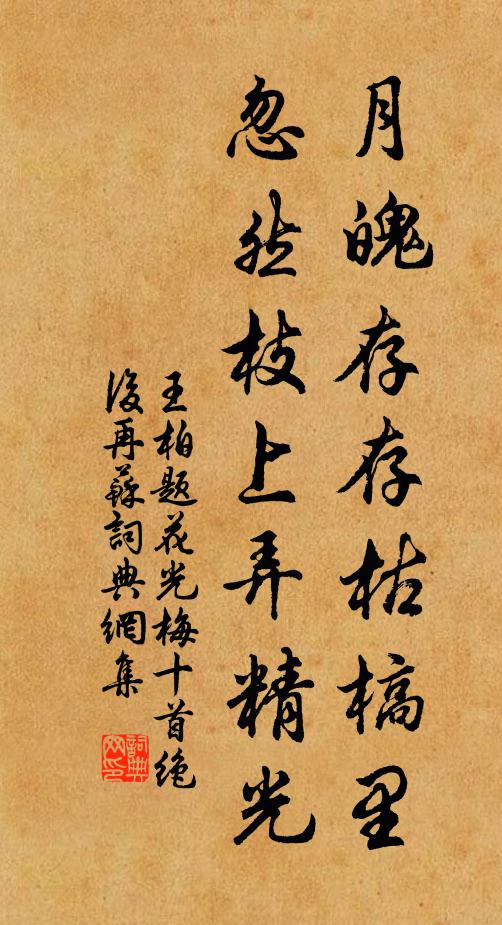 月魄存存枯槁里
忽然枝上弄精光
王柏題花光梅十首絶
後再蘇詞典網集
詞典
网印